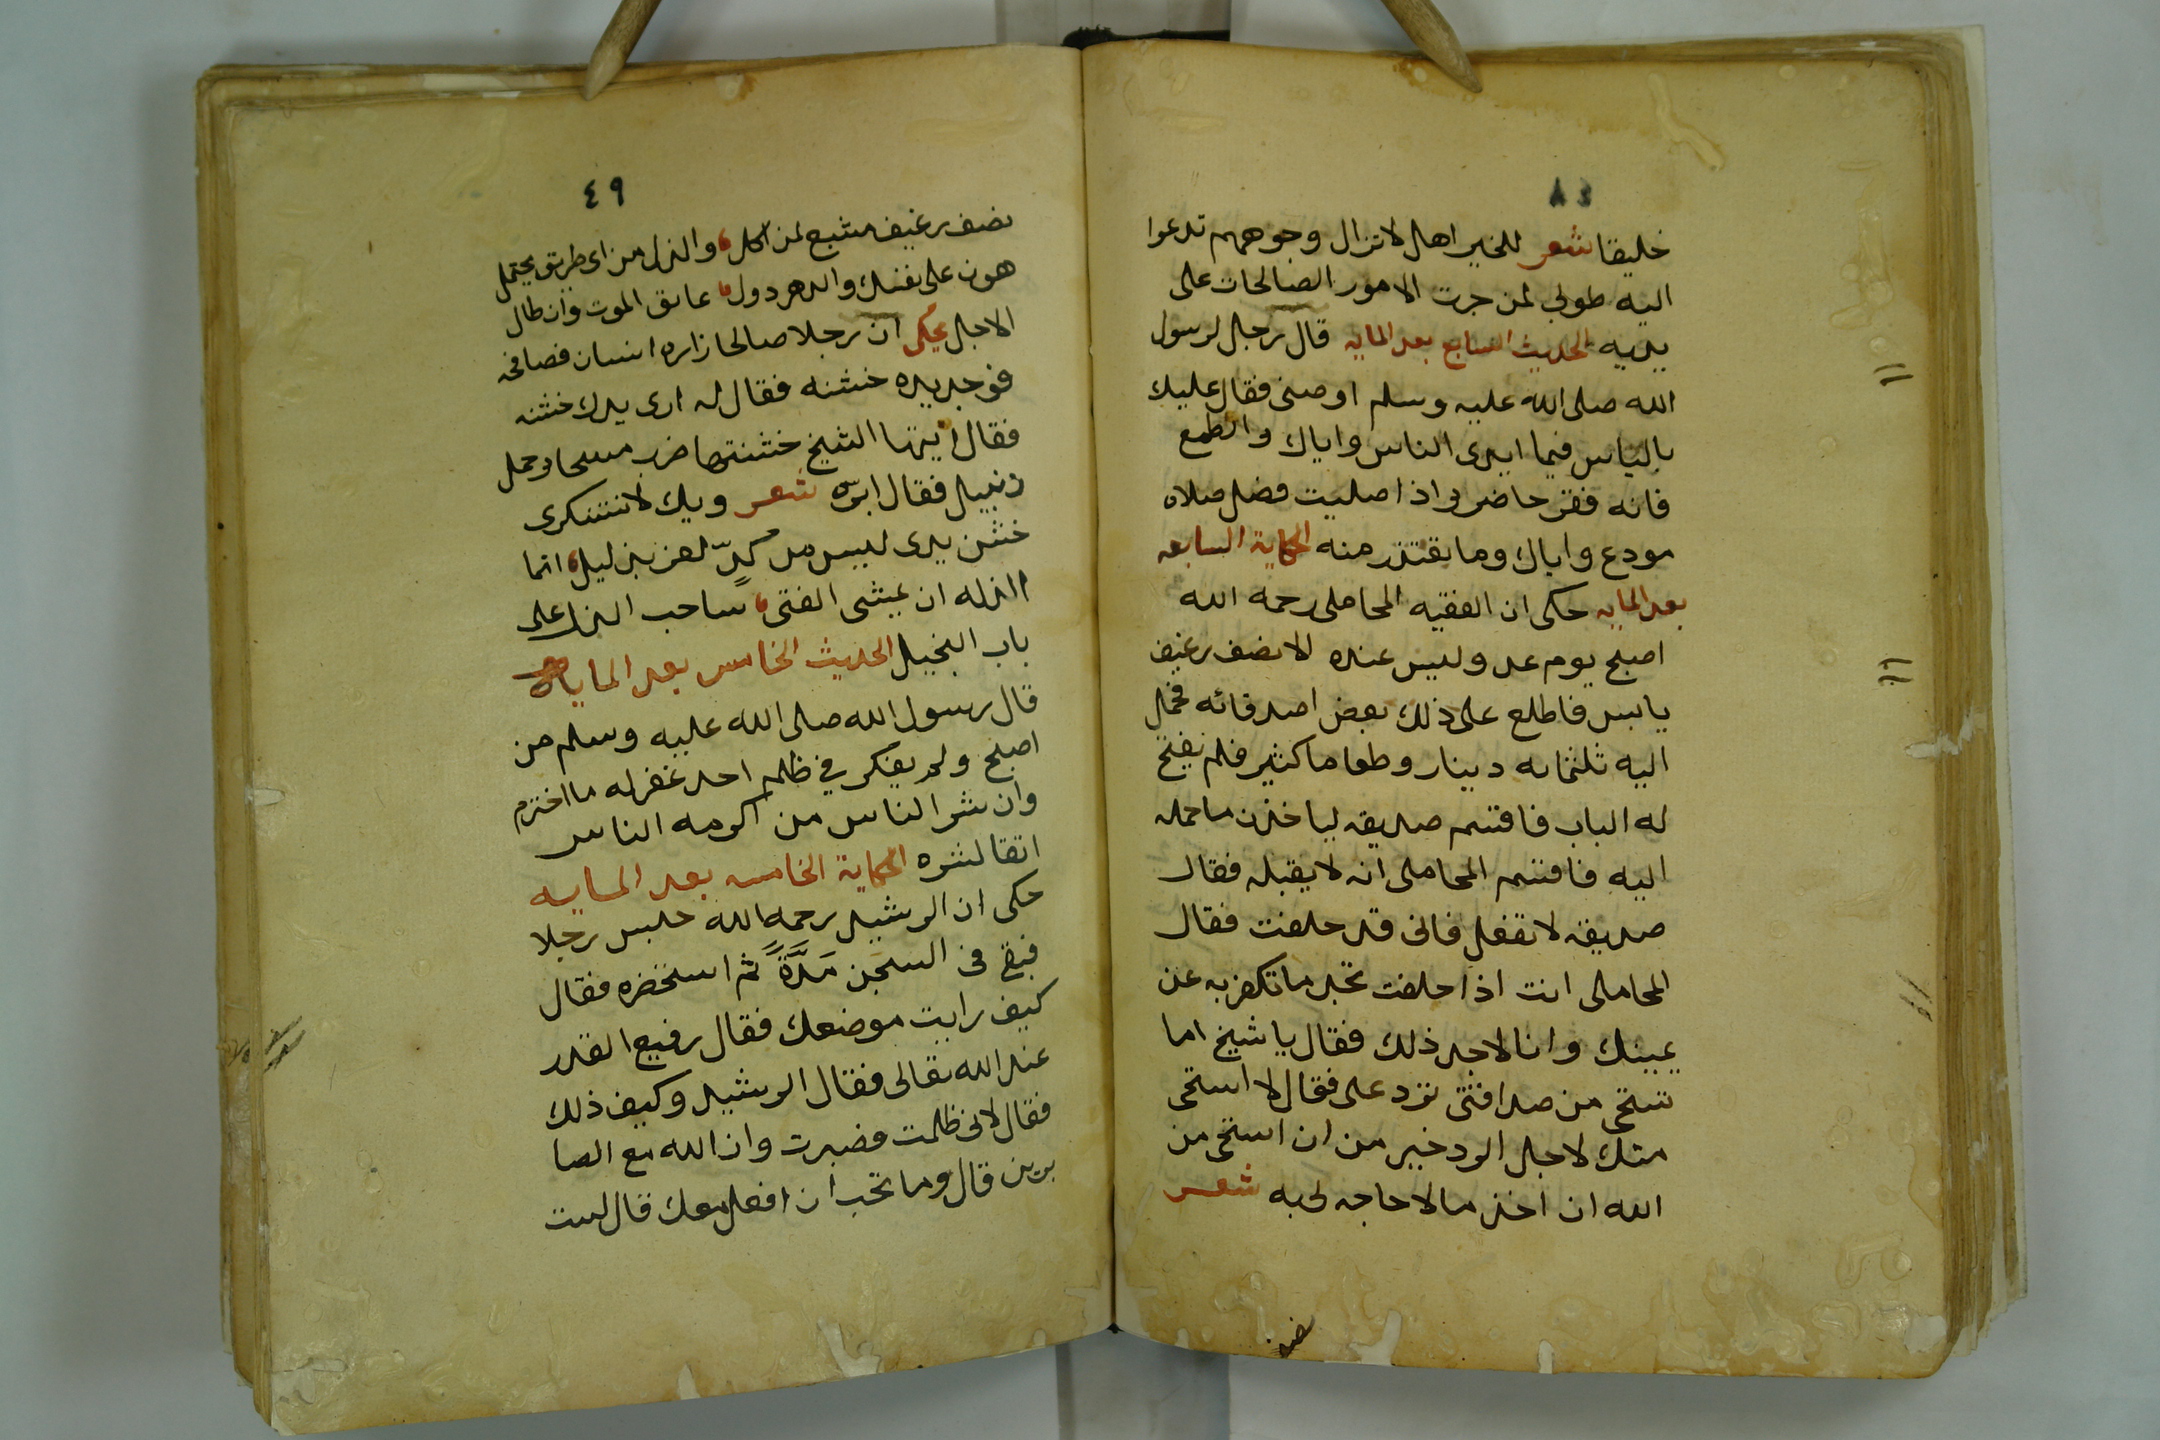 ٤٨
خليقا شعر للخير اهل لا تزال وجوههم تدعوا
اليه طوبى لمن جرت الامور الصالحات على
يديه الحديث السابع بعد المايه قال رجل لرسول
الله صلى الله عليه وسلم اوصنى فقال عليك
بالياس فيما ايدى الناس واياك والطمع
فانه فقر حاضر واذا صليت فضل صلاه
مودع واياك وما يعتذر منه الحكاية السابعه
بعد المايه حكى ان الفقيه المحاملى رحمه الله
اصبح يوم عد وليس عنده الا نصف رغيف
يابس فاطلع على ذلك بعض اصدقائه فحمل
اليه ثلثمايه دينار وطعاما كثير فلم يفتح
له الباب فاقسم صديقه لياخذن ما حمله
اليه فاقسم المحاملى انه لا يقبله فقال
صديقه لا تفعل فانى قد حلفت فقال
المحاملى انت اذا حلفت تجد ما تكفر به عن
يمينك وانا لا اجد ذلك فقال يا شيخ اما
تستحى من صداقتى ترد على فقال لا استحى
منك لاجل الود خير من ان استحى من
الله ان اخذ ما لا حاجه لى به شعر
نصف
٤٩
نصف رغيف مشبع لمن اكل والذل من اى طريق يحتمل
هون على نفسك والدهر دول عانق الموت وان طال
الاجل يحكى ان رجلا صالحا زاره انسان فصافحه
فوجد يده خشنه فقال له ارى يدك خشنه
فقال ايتها الشيخ خشنتها ضرب مسحا وحمل
زنبيل فقال ابره شعر ويك لا تستنكرى
خشن يدى ليس من كدّ لعز بذليل انما
الذله ان يمشى الفتى ساحب الذل على
باب البخيل الحديث الخامس بعد المايه
قال رسول الله صلى الله عليه وسلم من
اصبح ولم يفكر في ظلم احد غفر له ما اخترم
وان شر الناس من اكرمه الناس
اتقا لشره الحكاية الخامسه بعد المايه
حكى ان الرشيد رحمه الله حبس رجلا
فبقى فى السجن مَدَّةً ثم استحضره فقال
كيف رايت موضعك فقال رفيع القدر
عند الله تعالى فقال الرشيد وكيف ذلك
فقال لانى ظلمت فصبرت وان الله مع الصا
برين قال وما تحب ان افعل معك قال لست